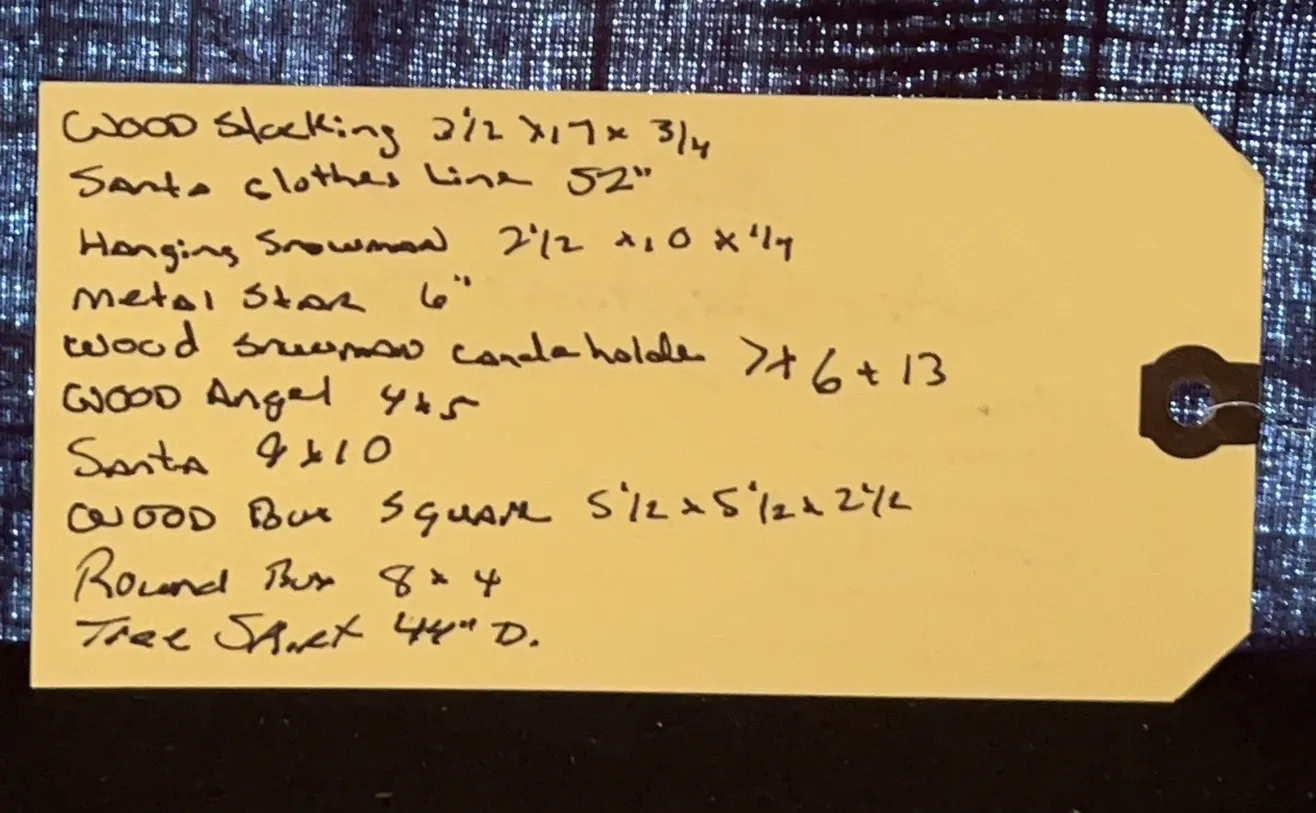 WOOD Stocking 3 1/2 x 17 x 3/4
Santa clothes Line 52"
Hanging Snowman 2 1/2 x 10 x 1/4
Metal Star 6"
Wood Snowman candle holder 7 x 6 x 13
WOOD Angel 4 x 5
Santa x 10
WOOD Box Square 5 1/2 x 5 1/2 x 2 1/2
Round Box 8 x 4
Tree Skirt 44" D.